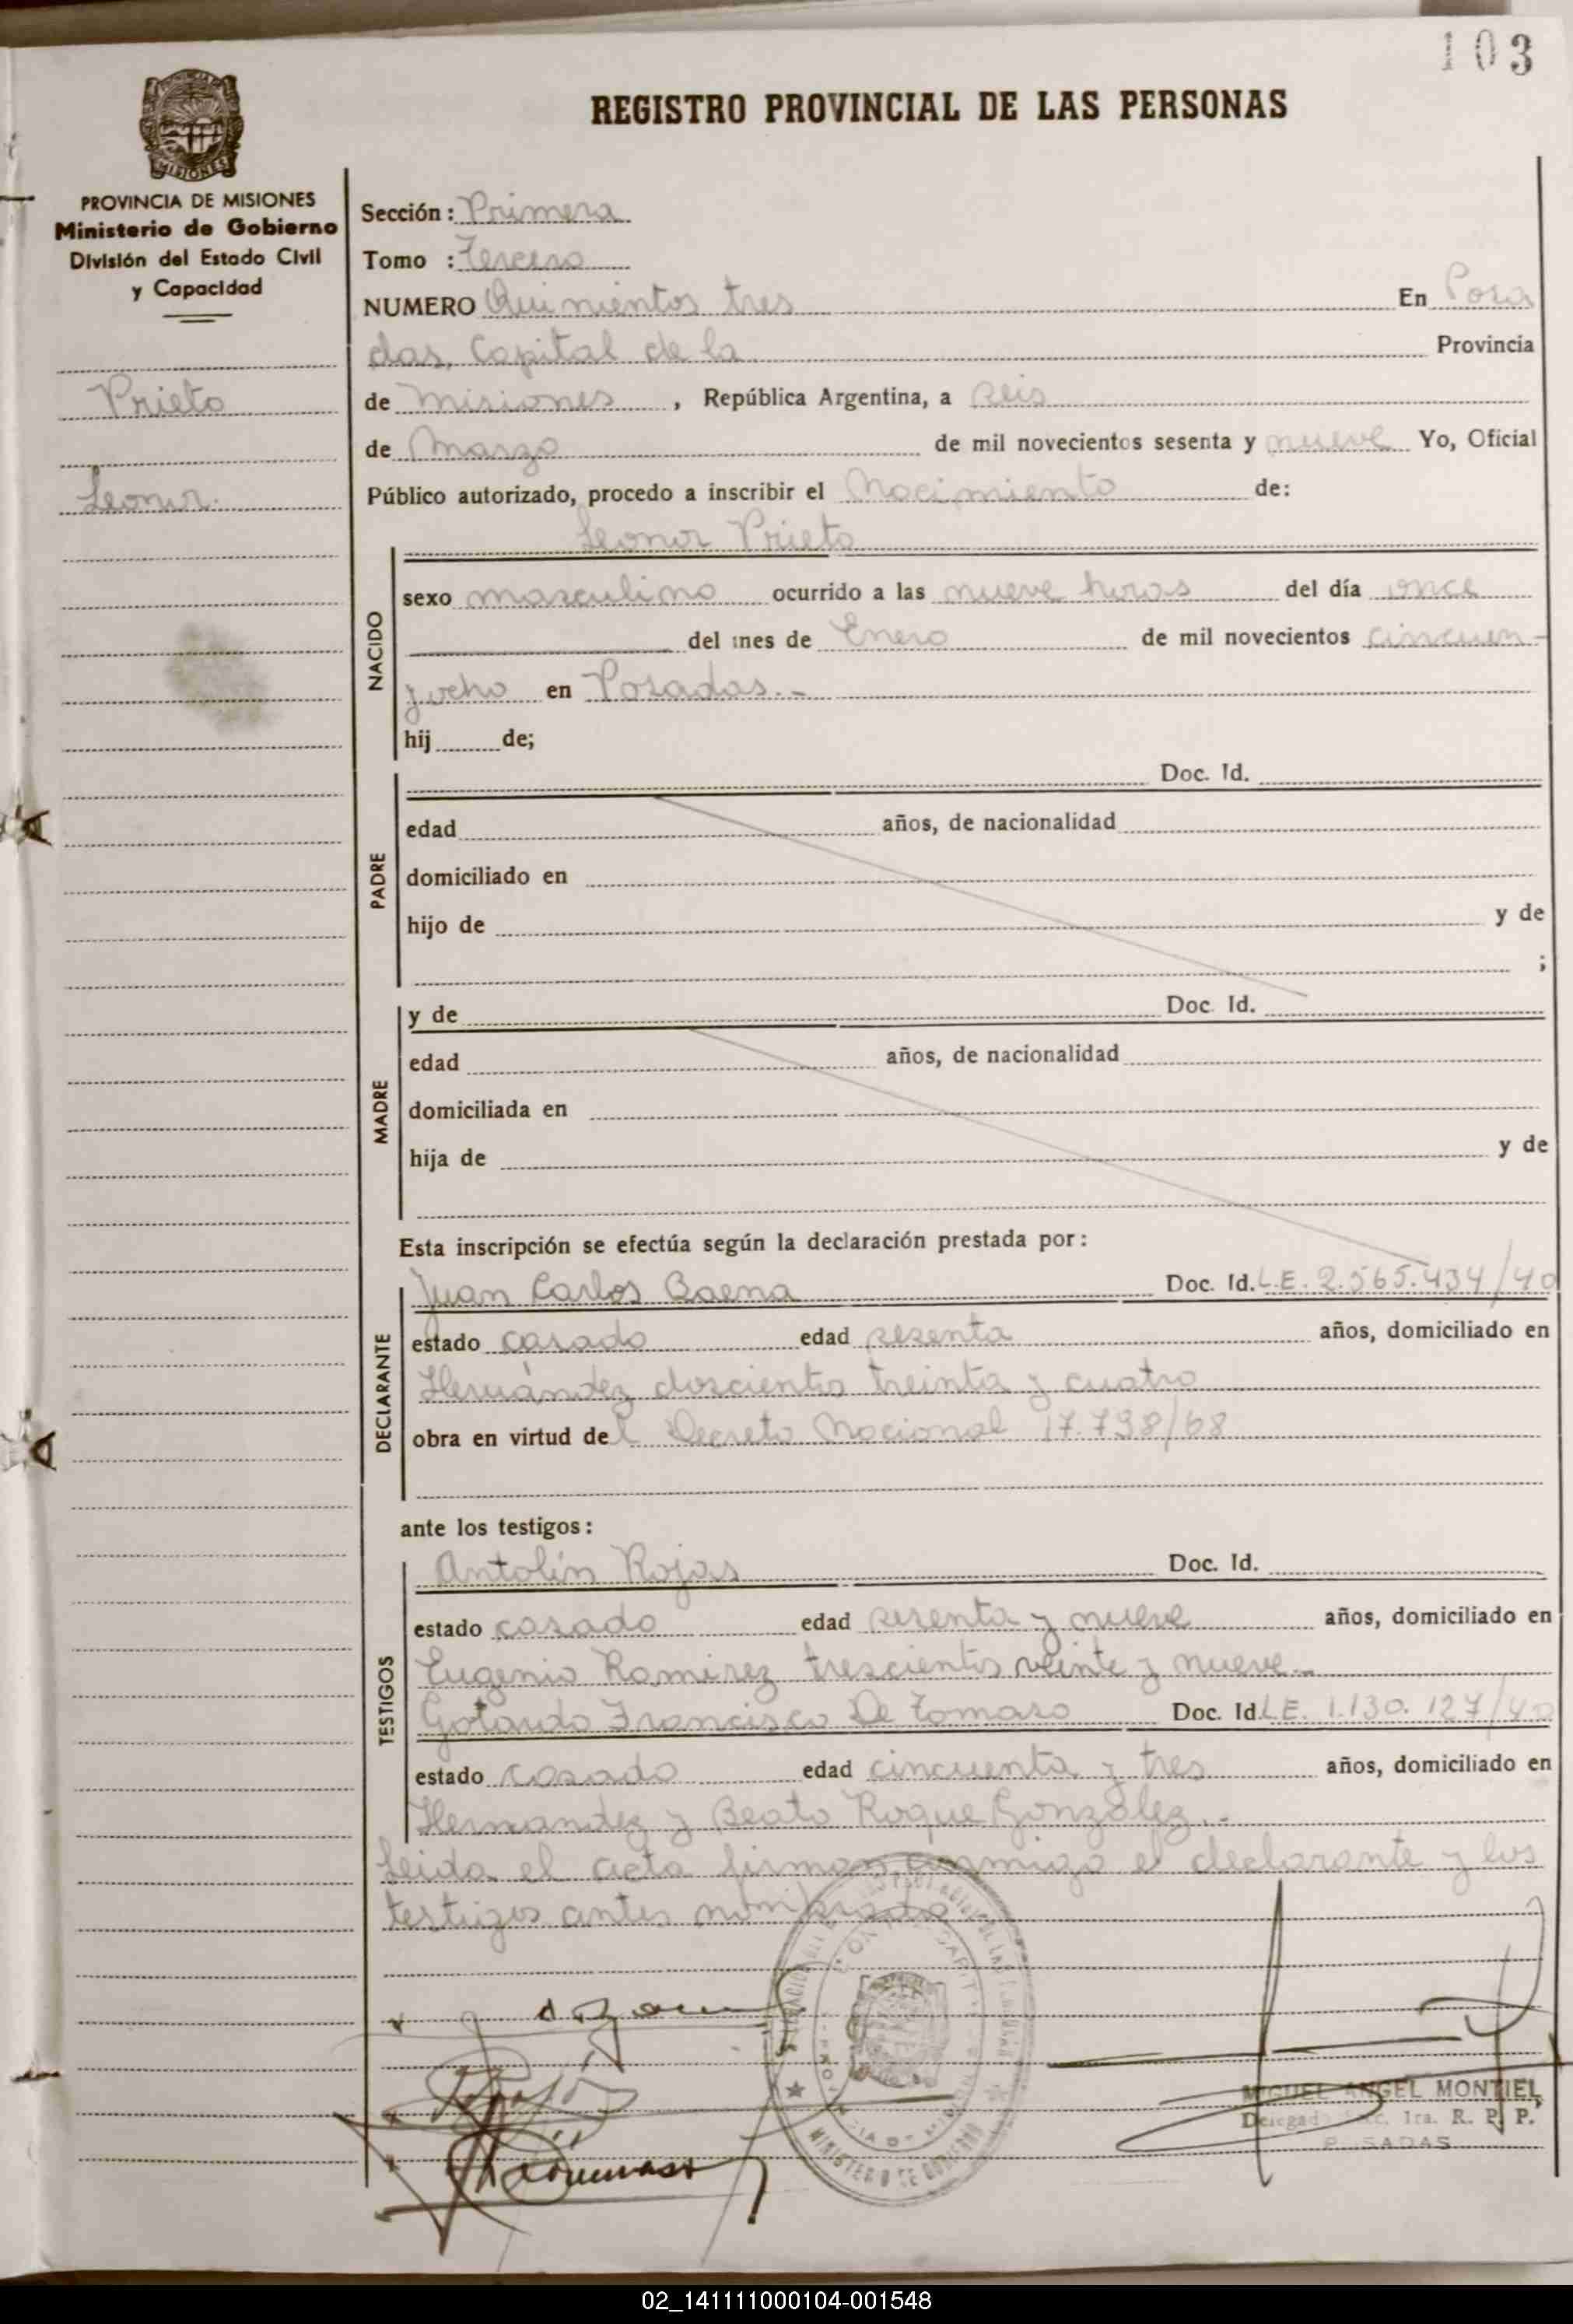 103
REGISTRO PROVINCIAL DE LAS PERSONAS
MISIONES
PROVINCIA DE MISIONES
Ministerio de Gobierno
División del Estado Civil
y Capacidad
Prieto
Leonor.
Sección: Primera
Tomo : Tercero
NUMERO Quinientos tres En Posa
das, Capital de la Provincia
de Misiones, República Argentina, a seis
de Marzo de mil novecientos sesenta y nueve Yo, Oficial
Público autorizado, procedo a inscribir el Nacimiento de:
Leonor Prieto
NACIDO
sexo masculino ocurrido a las nueve horas del día once
del mes de Enero de mil novecientos cincuen-
yocho en Posadas.-
hij de;
PADRE
Doc. Id.
edad años, de nacionalidad
domiciliado en
hijo de y de
;
MADRE
y de Doc. Id.
edad años, de nacionalidad
domiciliada en
hija de y de
Esta inscripción se efectúa según la declaración prestada por:
DECLARANTE
Juan Carlos Baena Doc. Id. L.E. 2.565.434/40
estado casado edad sesenta años, domiciliado en
Hernández doscientos treinta y cuatro
obra en virtud del Decreto Nacional 17.798/68
ante los testigos:
TESTIGOS
Antolín Rojas Doc. Id.
estado casado edad sesenta y nueve años, domiciliado en
Eugenio Ramirez trescientos veinte y nueve.-
Gotardo Francisco De Tomaso Doc. Id. L.E. 1.130.127/40
estado casado edad cincuenta y tres años, domiciliado en
Hernandez y Beato Roque González.-
Leida el acta firman conmigo el declarante y los
testigos antes nombrado
MINISTERIO DE GOBIERNO
MIGUEL ANGEL MONTIEL
Delegado Sec. 1ra. R. P. P.
POSADAS
02_141111000104-001548